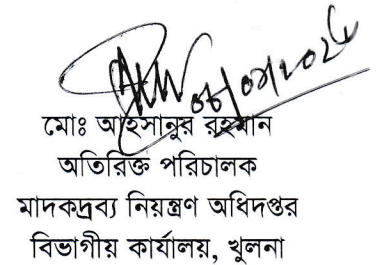 মোঃ আহসানুর রহমান
অতিরিক্ত পরিচালক
মাদকদ্রব্য নিয়ন্ত্রণ অধিদপ্তর
বিভাগীয় কার্যালয়, খুলনা